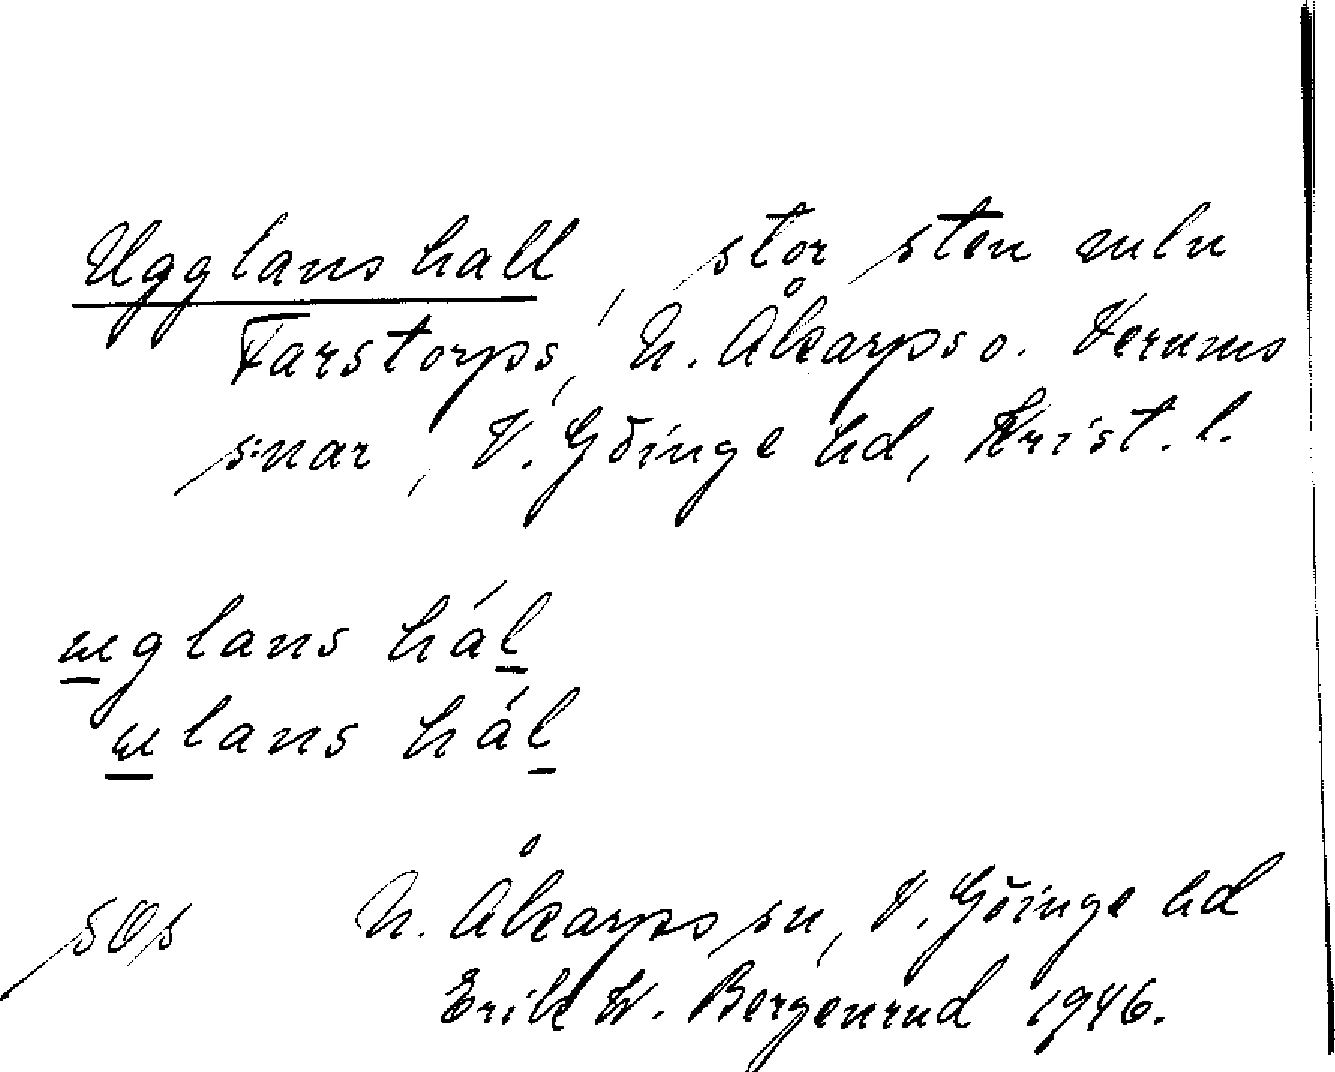 Ugglans hall, stor sten mln
Farstorps, N. Åkarps o. Verums
s:nar, V. Göinge hd, Krist. l.
uglans hál
ulans hál
sOs N. Åkarps sn, V. Göinge hd
Erik W. Bergenrud 1946.